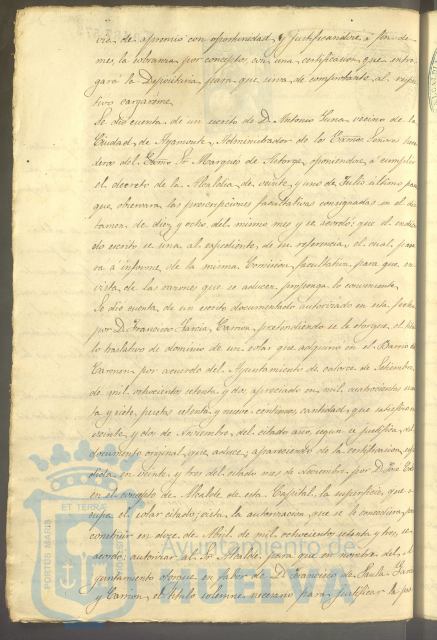 vía de apremio con oportunidad y justificandose á fin de
mes, la cobranza por conceptos, con una certificacion que entre-
gará la Depositaria para que sirva de comprobante al respec-
tivo cargareme.
Se dió cuenta de un escrito de D. Antonio Luna vecino de la
Ciudad de Ayamonte, Administrador de los Exmos Sres here-
deros del Exmo Sr Marques de Astorga, oponiendose á cumplir
el decreto de la Alcaldia de veinte y uno de Julio último para
que observara las prescripciones facultativas consignadas en el dic-
tamen de diez y ocho del mismo mes y se acordó: que el indica-
do escrito se una al espediente de su referencia, el cual, pase
á informe de la misma Comision facultativa para que en
vista de las razones que se aducen, proponga lo conveniente.
Se dió cuenta de un escrito documentado autorizado en esta fecha
por D. Francisco Garcia Carrion, pretendiendo se le otorgue el titu-
lo traslativo de dominio de un solar que adquirió en el Barrio del
Carmen por acuerdo del Ayuntamiento de catorce de Setiembre
de mil ochocientos setenta y dos apreciado en mil cuatrocientas
ta y siete pesetas setenta y nueve centimos, cantidad que satisfizo en
veinte y dos de Noviembre del citado año, segun se justifica del
documento original que aduce; apareciendo de la certificacion espe-
dida en veinte y tres del citado mes de Noviembre por D. José
en el concepto de Alcalde de esta Capital, la superficie que o-
cupa el solar citado; vista la autorizacion que se le concediera para
construir en doce de Abril de mil ochocientos setenta y tres, se
acordó: autorizar al Sr Alcalde para que en nombre del A-
yuntamiento otorgue en favor de D. Francisco de Paula Garcia
y Carrion el titulo solemne necesario para justificar la
PORTUS MARIS ET TERRAE
Ayuntamiento de
HUELVA